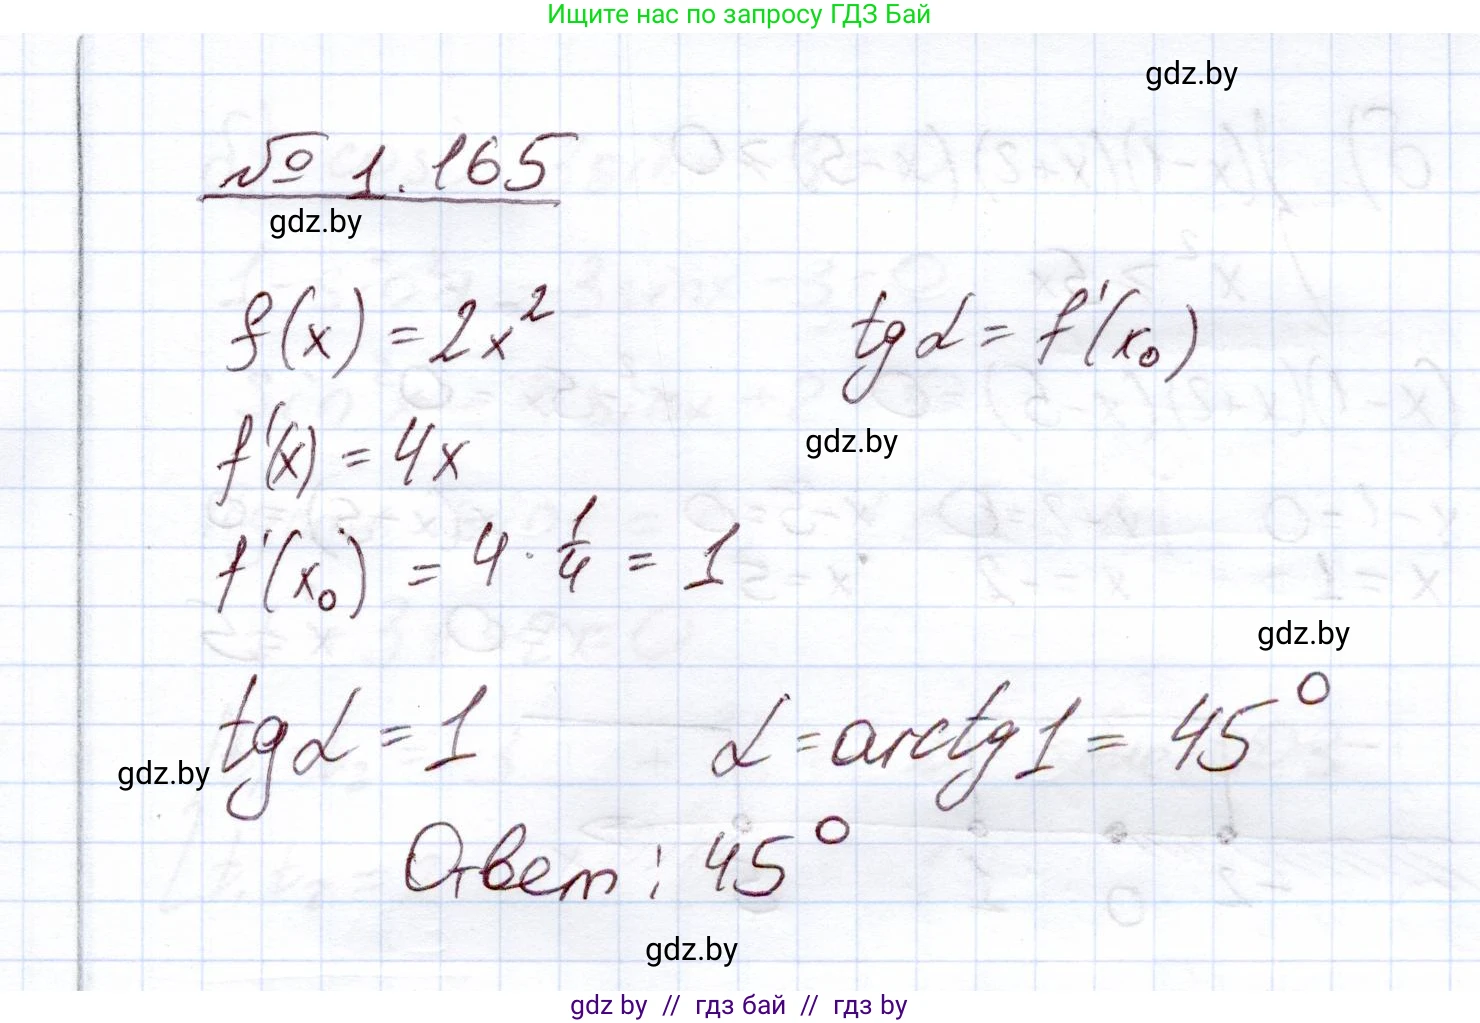 Ищите нас по запросу ГДЗ Бай
gdz.by
№ 1.165
gdz.by
f(x) = 2x²
tg α = f'(x₀)
gdz.by
f'(x) = 4x
f'(x₀) = 4 · 1/4 = 1
gdz.by
tg α = 1
α = arctg 1 = 45°
gdz.by
Ответ: 45°
gdz.by
gdz by // гдз бай // gdz by